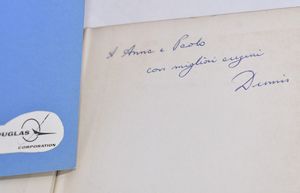 A Anna e Paolo
con migliori auguri
Dennis
OUGLAS
CORPORATION